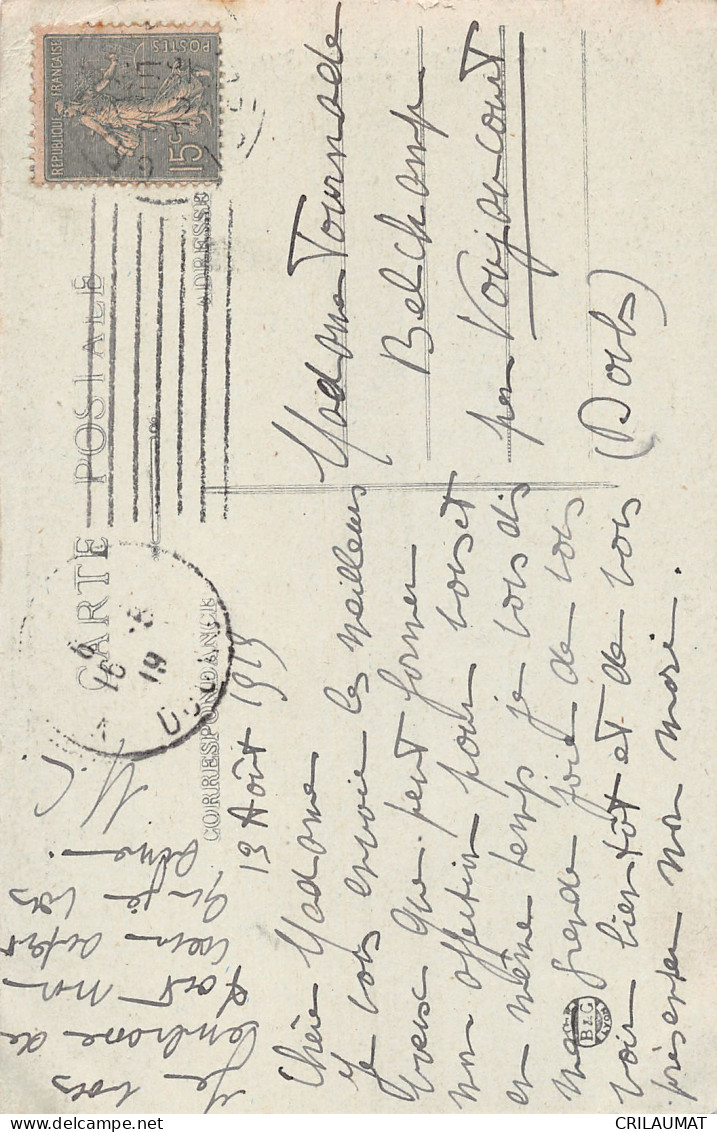 CARTE POSTALE
CORRESPONDANCE
ADRESSE
REPUBLIQUE FRANÇAISE
POSTES
15c
16 -8
19
DOUBS
13 Août 1919
Chère Madame
Je vous envoie les meilleurs
vœux que peut former
mon affection pour vous et
en même temps je vous dis
ma grande joie de vous
voir bientôt et de vous
présenter mon mari.
Je vous
embrasse de
tout mon
cœur
je vous
aime
Madame Tournade
Belchamp
par Voujeaucourt
(Doubs)
B&G
LYON
CRILAUMAT